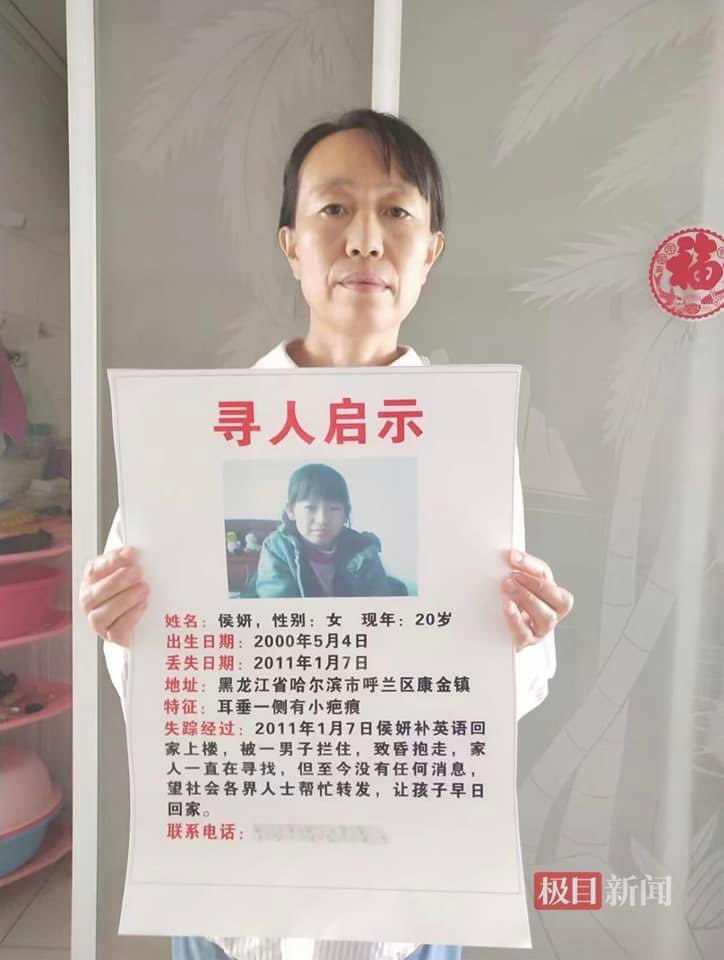 福
寻人启示
姓名：侯妍，性别：女 现年：20岁
出生日期：2000年5月4日
丢失日期：2011年1月7日
地址：黑龙江省哈尔滨市呼兰区康金镇
特征：耳垂一侧有小疤痕
失踪经过：2011年1月7日侯妍补英语回
家上楼，被一男子拦住，致昏抱走，家
人一直在寻找，但至今没有任何消息，
望社会各界人士帮忙转发，让孩子早日
回家。
联系电话：
极目新闻